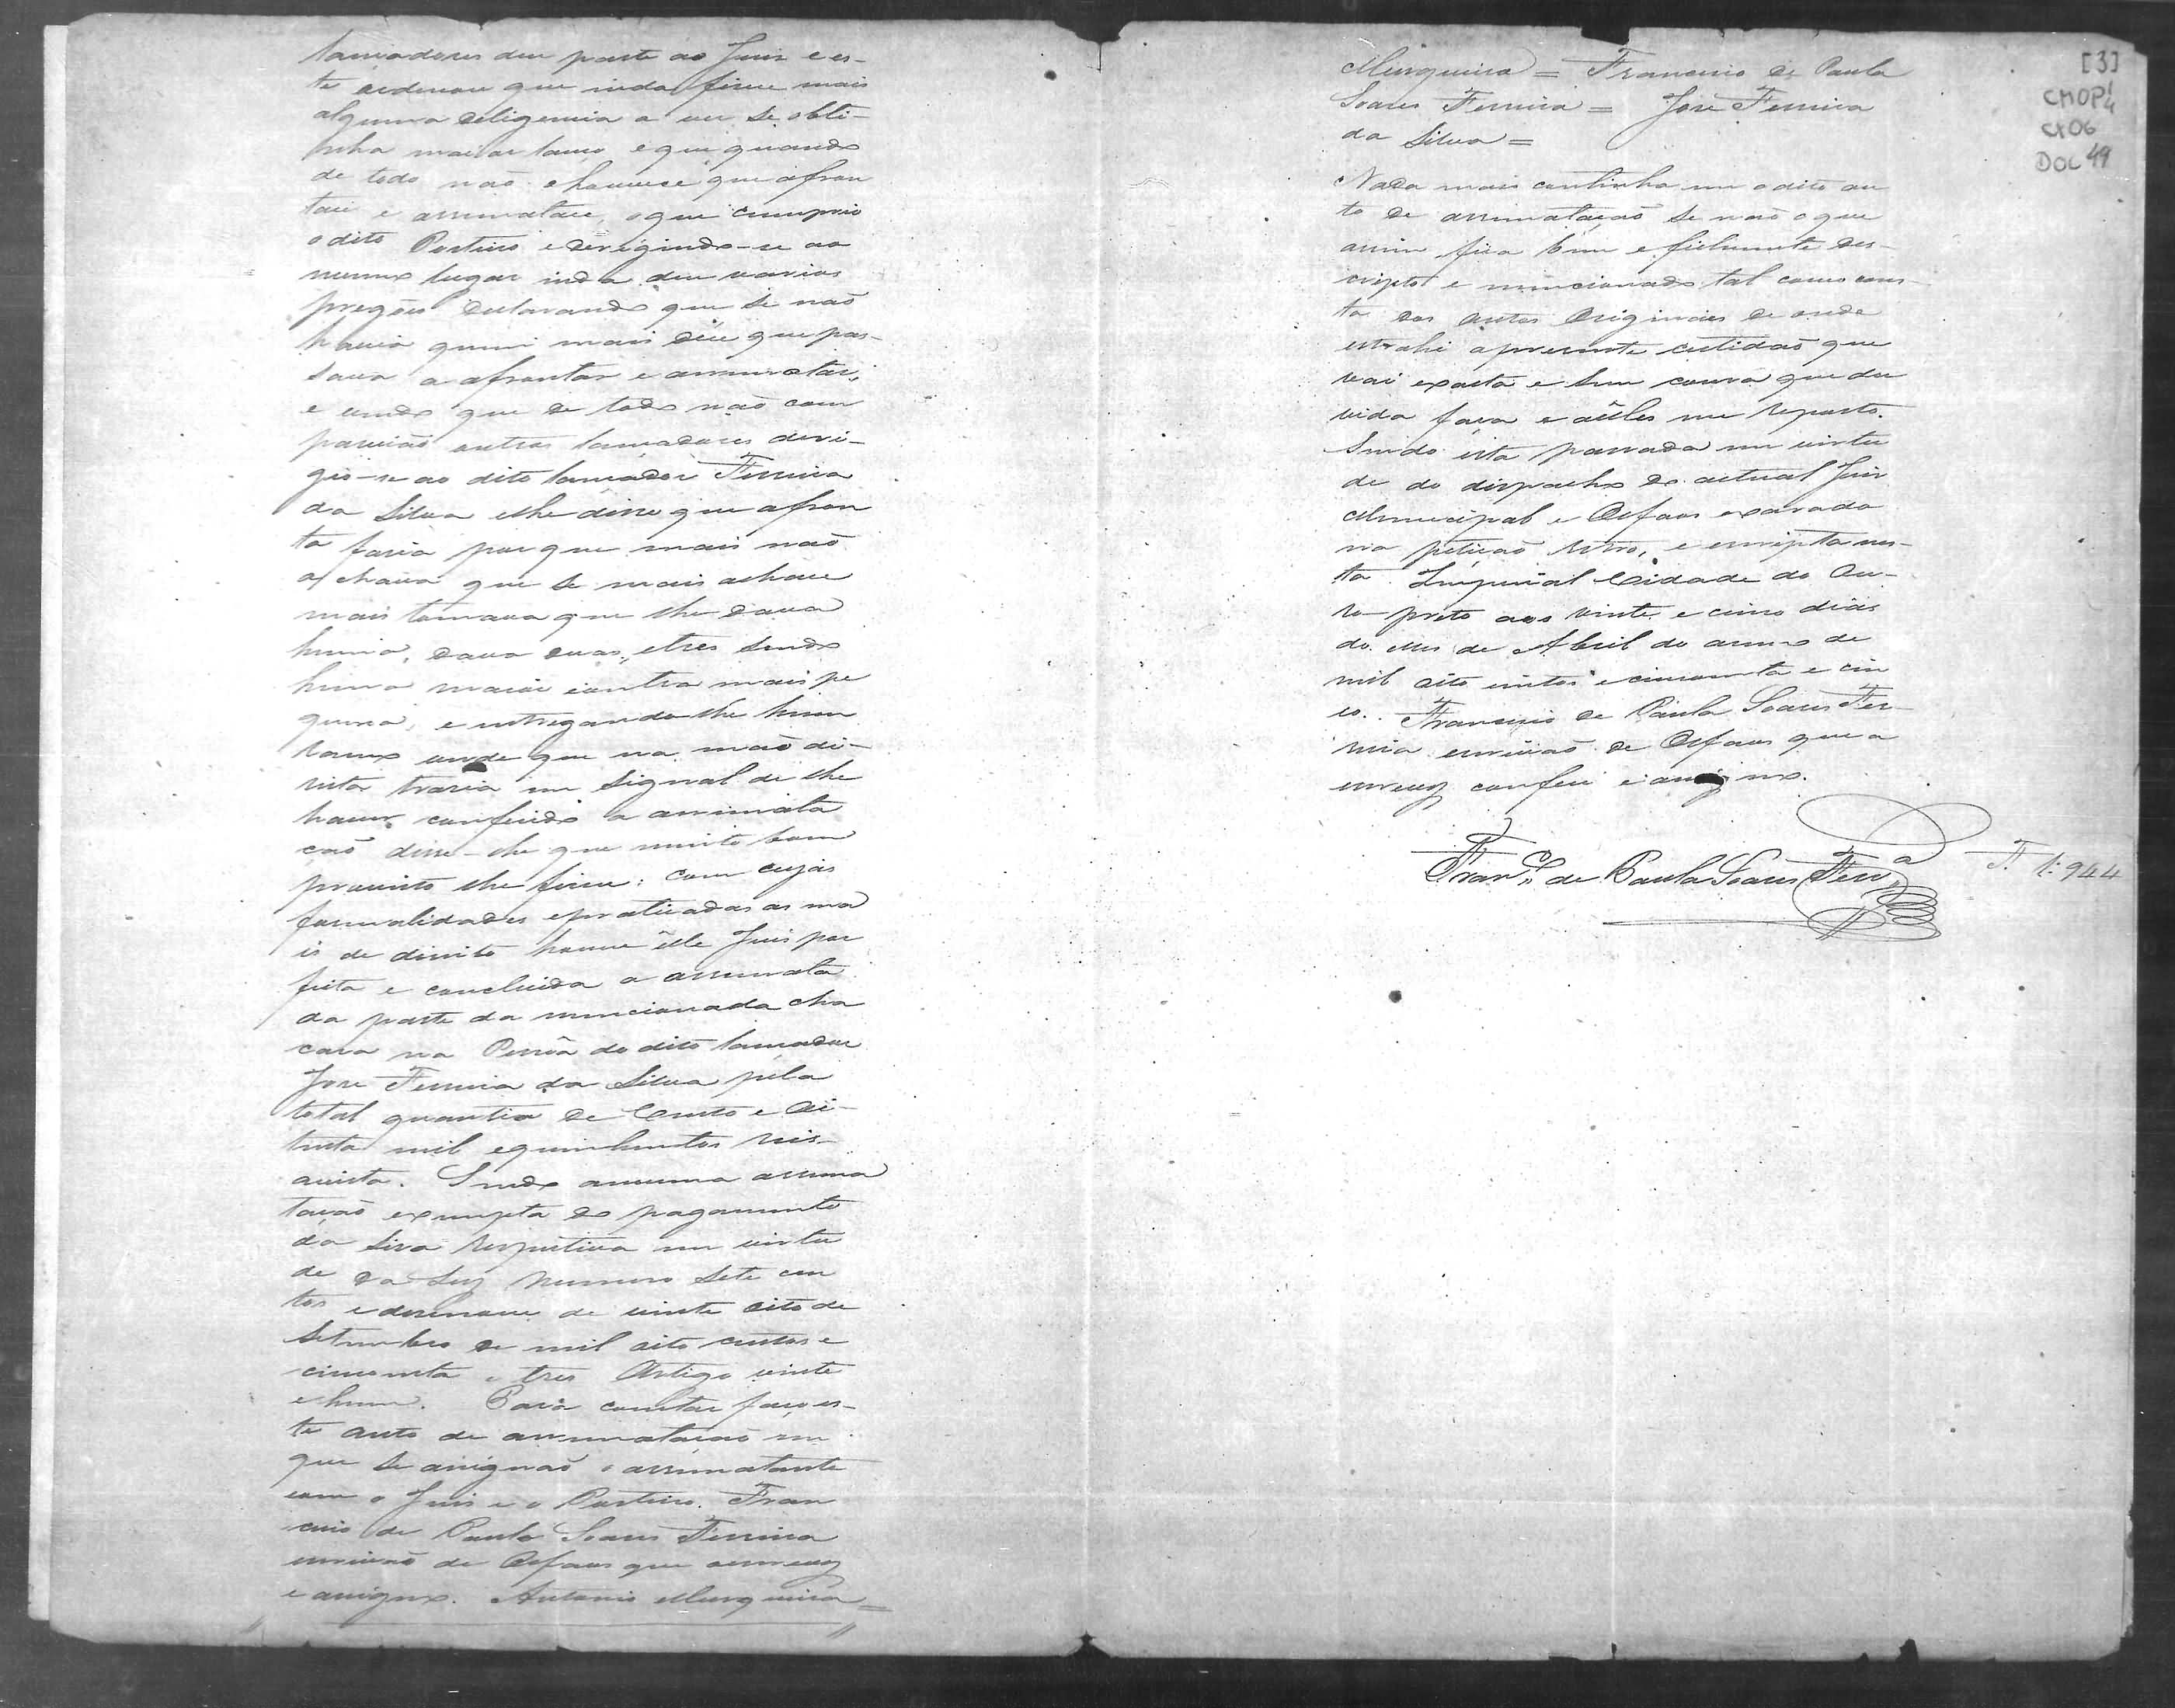 lançadores deu parte ao Juis e es-
te ordenou que inda fisesse mais
alguma deligencia a ver se obti-
nha maior lanço, e que quando
de todo não houvesse que afron
tasse e arrematasse, o que cumprio
o dito Porteiro e deregindo-se ao
mesmo lugar inda deu varios
pregões declarando que se não
havia quem mais désse que pas-
sava a afrontar e arrematar,
e vendo que de todo não com
parecião outros lançadores deri-
gio-se ao dito lançador Ferreira
da Silva e lhe disse que afron
ta fasia porque mais não
achava que se mais achace
mais tomava que lhe dava
huma, dava duas, e tres sendo
huma maior e outra mais pe
quena, e entregando lhe hum
ramo verde que na mão di-
reita trasia em signal de lhe
haver conferido a arremata
ção disse-lhe que muito bom
proveito lhe fisesse: com cujas
formalidades e praticadas as ma
is de direito houve êlle Juis por
feita e concluida a arremata
da parte da mencionada cha
cara na Pessôa do dito lançador
Jose Ferreira da Silva, pela
total quantia de Cento e Oi-
tenta mil e quinhentos reis
avista. Sendo a mesma arrema
tação exempta do pagamento
da Siza respectiva em virtu
de da Ley numero Sete cen
tos e desenove de vinte oito de
Setembro de mil oito centos e
cincoenta e tres Artigo vinte
e hum. Para constar faço es-
te auto de arrematação em
que se assignão o arrematante
com o Juis e o Porteiro. Fran
cisco de Paula Soares Ferreira
escrivão de Orfaos que o escrevy
e assigno. Antonio Mesquiera =
Mesqueira = Francisco de Paula
Soares Ferreira = Jose Ferreira
da Silva =
Nada mais continha em o dito au
to de arrematação se não o que
assim fica bem e fielmente des-
cripto e mencionado tal como cons-
ta dos autos Originaes de onde
estrahi a presente certidão que
vai exacta e sem cousa que du
vida faça e a êlles me reporto.
Sendo esta passada em virtu
de do despacho do actual Juis
Municipal e Orfaos exarado
na petição retro, e escripta nes-
ta Imperial Cidade do Ou-
ro-preto aos vinte e cinco dias
do Mes de Abril do anno de
mil oito centos e cincoenta e cin
co. Francisco de Paula Soares Fer-
reira escrivão de Orfaos que a
escrevy conferi e assigno.
Fran.co de Paula Soares Ferr.a
[3]
CMOP
CX06
DOC 49
1:944